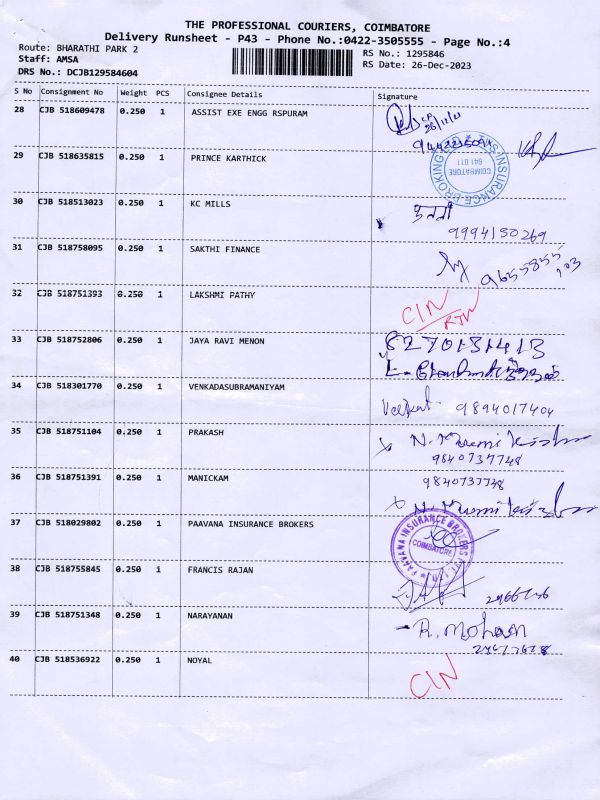 THE PROFESSIONAL COURIERS, COIMBATORE
Delivery Runsheet - P43 - Phone No.:0422-3505555 - Page No.:4
Route: BHARATHI PARK 2
RS No.: 1295846
Staff: AMSA
RS Date: 26-Dec-2023
DRS No.: DCJB129584604
S No Consignment No Weight PCS Consignee Details Signature
28 CJB 518609478 0.250 1 ASSIST EXE ENGG RSPURAM
29 CJB 518635815 0.250 1 PRINCE KARTHICK
INSURANCE BROKING
COIMBATORE
641 011
30 CJB 518513023 0.250 1 KC MILLS
9994150269
31 CJB 518758095 0.250 1 SAKTHI FINANCE
9655855103
32 CJB 518751393 0.250 1 LAKSHMI PATHY
CIN
RTN
33 CJB 518752806 0.250 1 JAYA RAVI MENON
8270131413
34 CJB 518301770 0.250 1 VENKADASUBRAMANIYAM
Venkat 9894017404
35 CJB 518751104 0.250 1 PRAKASH
9840737748
36 CJB 518751391 0.250 1 MANICKAM
9840737748
37 CJB 518029802 0.250 1 PAAVANA INSURANCE BROKERS
PAAVANA INSURANCE BROKERS
COIMBATORE
38 CJB 518755845 0.250 1 FRANCIS RAJAN
39 CJB 518751348 0.250 1 NARAYANAN
R. Mohan
40 CJB 518536922 0.250 1 NOYAL
CIN